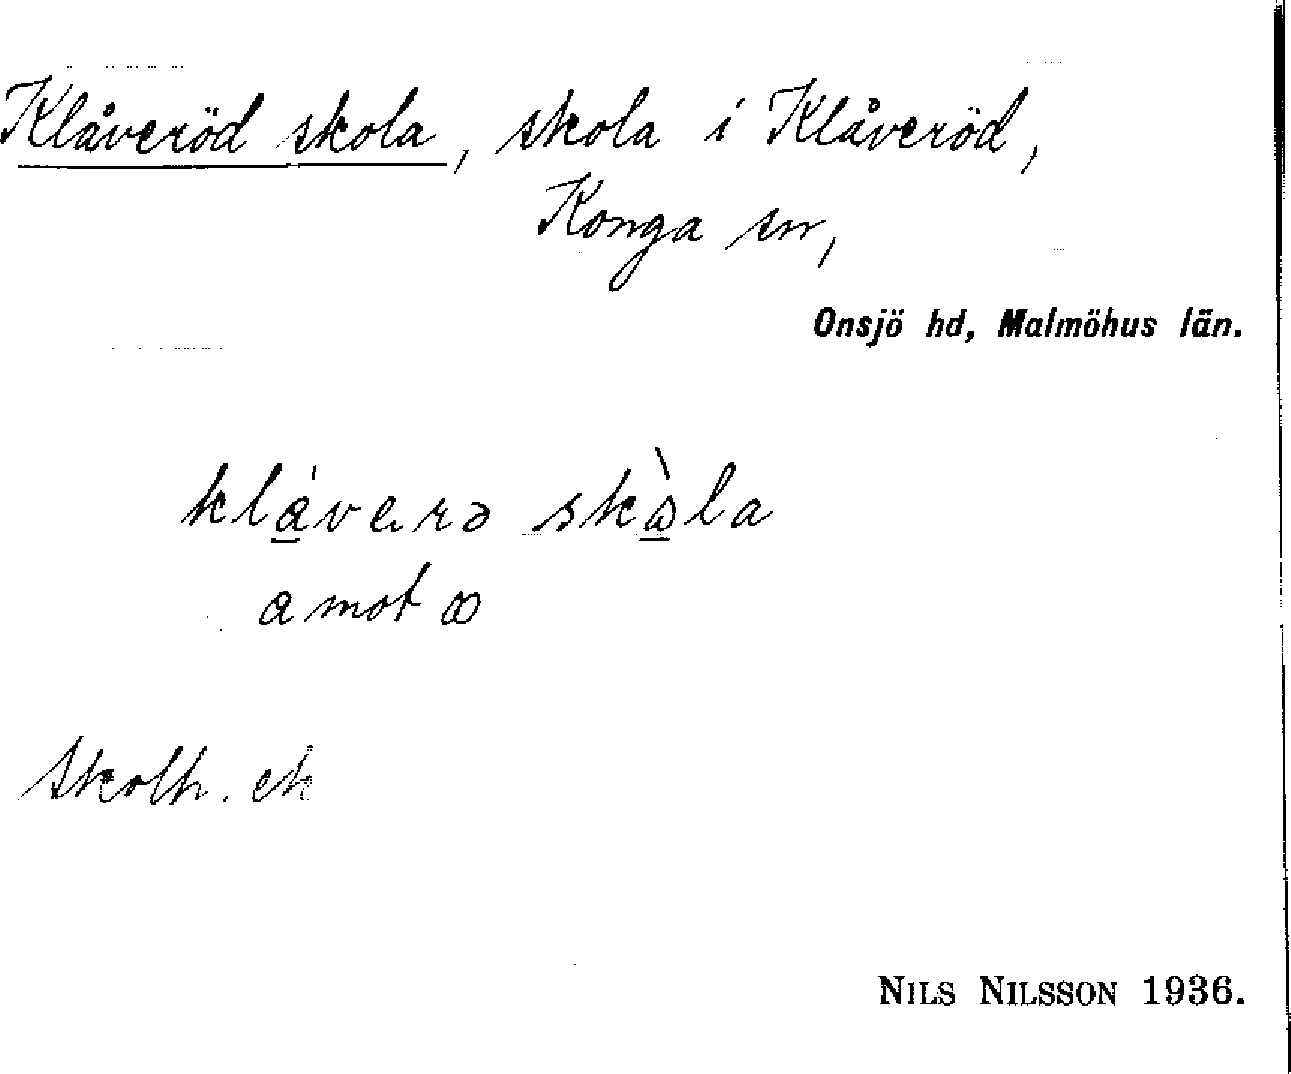 Klåveröd skola, skola i Klåveröd,
Konga sn,
Onsjö hd, Malmöhus län.
kláverə skàla
a mot ꝏ
Skolh. ek
NILS NILSSON 1936.